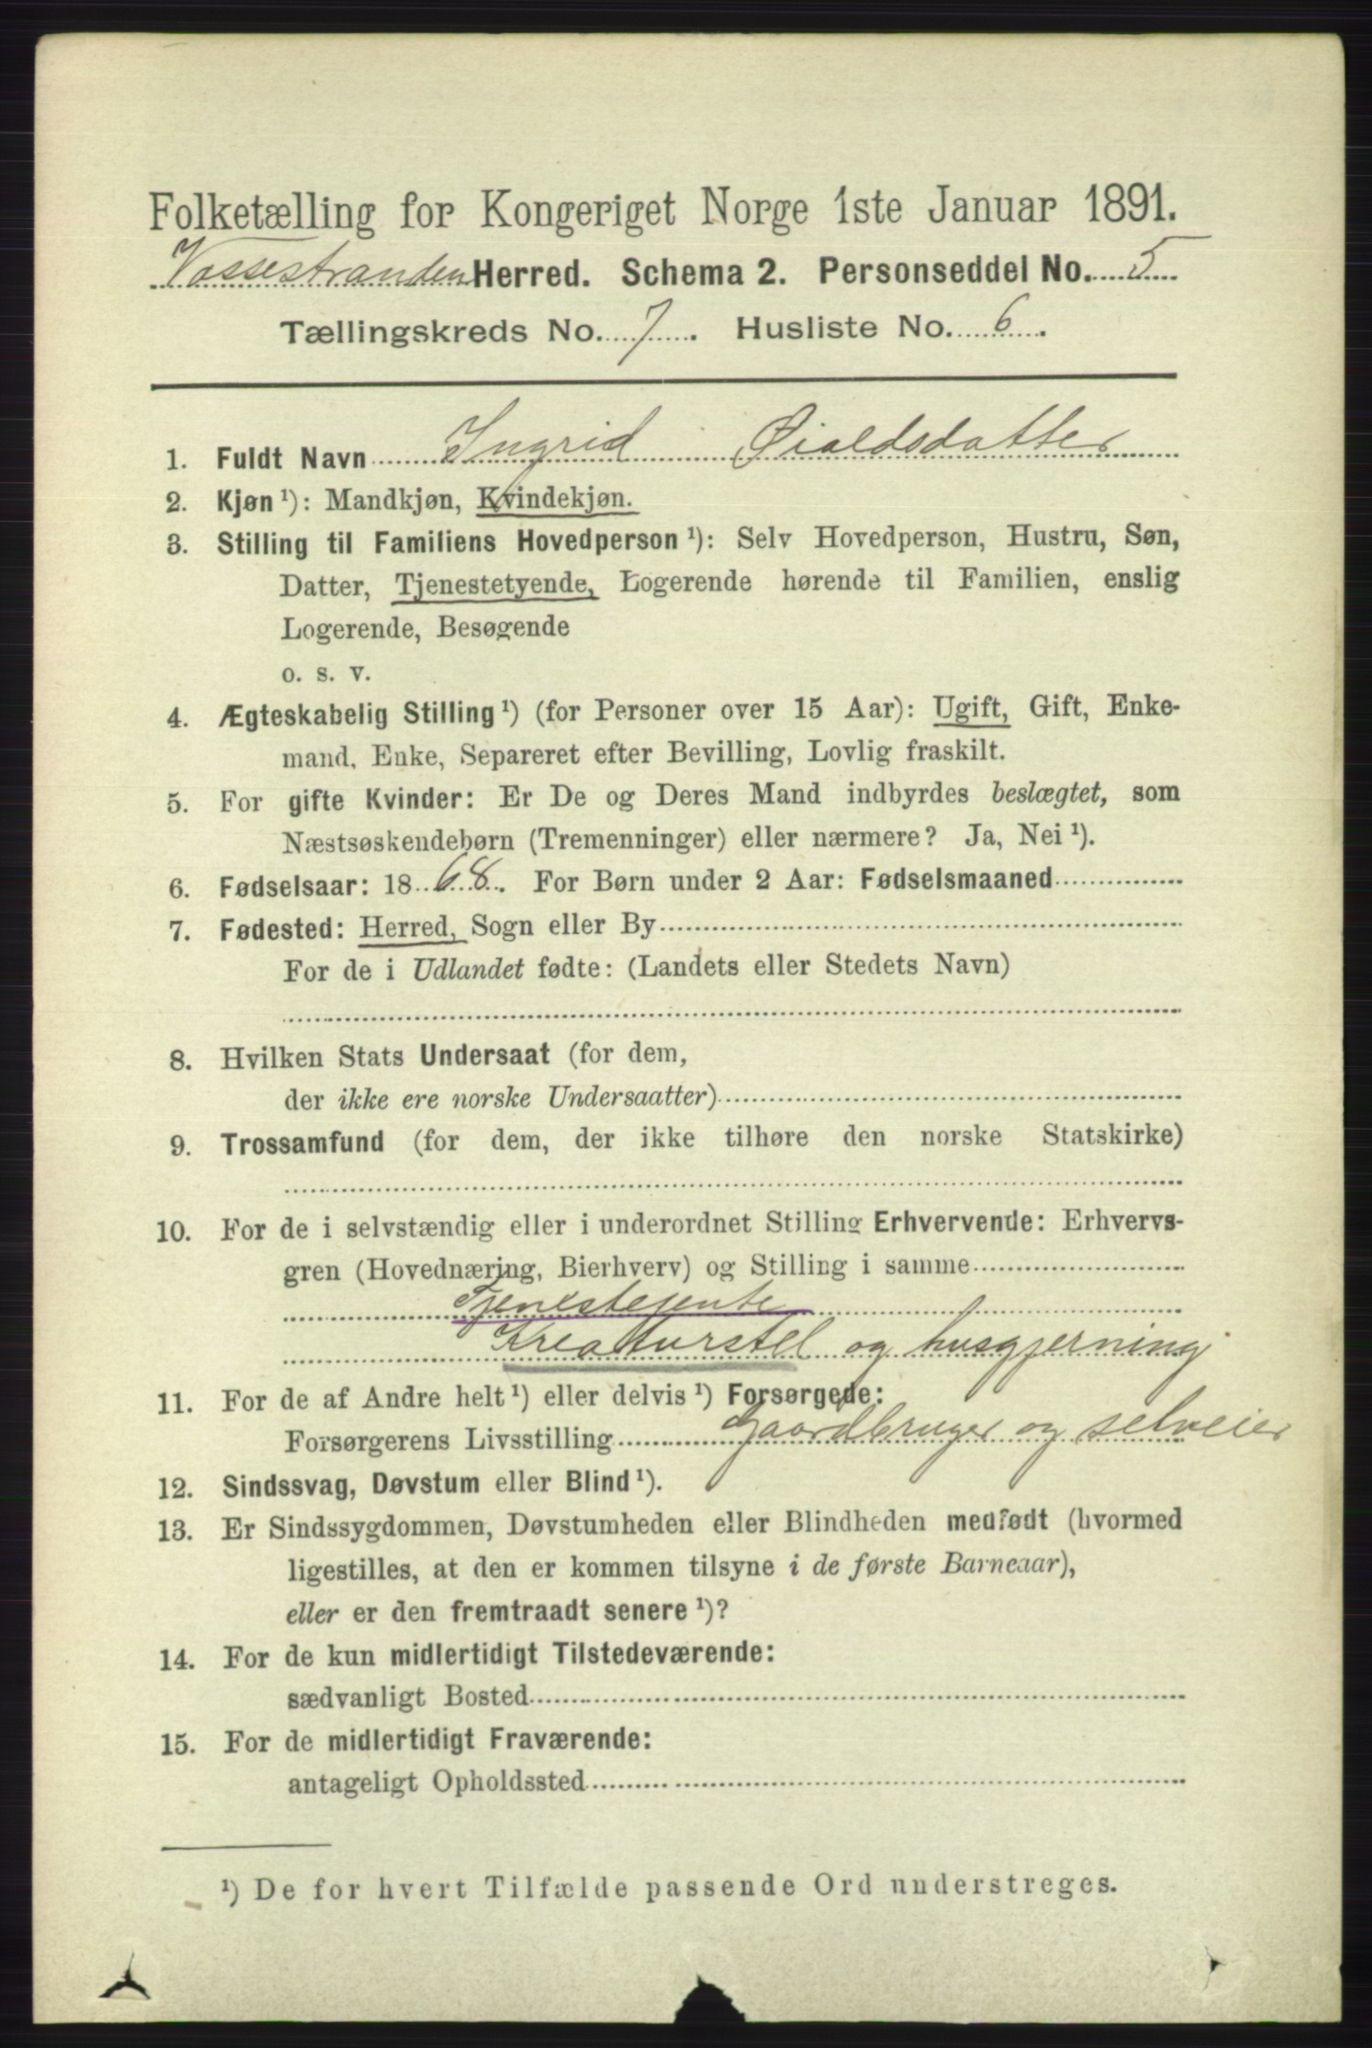 Folketælling for Kongeriget Norge 1ste Januar 1891.
Vossestranden Herred. Schema 2. Personseddel No. 5
Tællingskreds No. 7. Husliste No. 6.
1. Fuldt Navn Ingrid Øialdsdatter
2. Kjøn ¹): Mandkjøn, Kvindekjøn.
3. Stilling til Familiens Hovedperson ¹): Selv Hovedperson, Hustru, Søn,
Datter, Tjenestetyende, Logerende hørende til Familien, enslig
Logerende, Besøgende
o. s. v.
4. Ægteskabelig Stilling ¹) (for Personer over 15 Aar): Ugift, Gift, Enke-
mand, Enke, Separeret efter Bevilling, Lovlig fraskilt.
5. For gifte Kvinder: Er De og Deres Mand indbyrdes beslægtet, som
Næstsøskendebørn (Tremenninger) eller nærmere? Ja, Nei ¹).
6. Fødselsaar: 1868. For Børn under 2 Aar: Fødselsmaaned
7. Fødested: Herred, Sogn eller By
For de i Udlandet fødte: (Landets eller Stedets Navn)
8. Hvilken Stats Undersaat (for dem,
der ikke ere norske Undersaatter)
9. Trossamfund (for dem, der ikke tilhøre den norske Statskirke)
10. For de i selvstændig eller i underordnet Stilling Erhvervende: Erhvervs-
gren (Hovednæring, Bierhverv) og Stilling i samme
Tjenestejente
Kreaturstel og husgjerning
11. For de af Andre helt ¹) eller delvis ¹) Forsørgede:
Forsørgerens Livsstilling Gaardbruger og selveier
12. Sindssvag, Døvstum eller Blind ¹).
13. Er Sindssygdommen, Døvstumheden eller Blindheden medfødt (hvormed
ligestilles, at den er kommen tilsyne i de første Barneaar),
eller er den fremtraadt senere ¹)?
14. For de kun midlertidigt Tilstedeværende:
sædvanligt Bosted
15. For de midlertidigt Fraværende:
antageligt Opholdssted
¹) De for hvert Tilfælde passende Ord understreges.